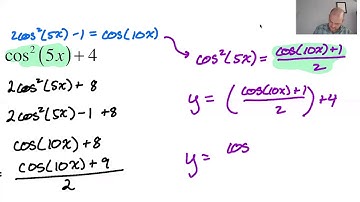 2cos²(5x) - 1 = cos(10x)
cos²(5x) + 4
2cos²(5x) + 8
2cos²(5x) - 1 + 8
cos(10x) + 8
= cos(10x) + 9 / 2
cos²(5x) = cos(10x) + 1 / 2
y = (cos(10x) + 1 / 2) + 4
y = cos